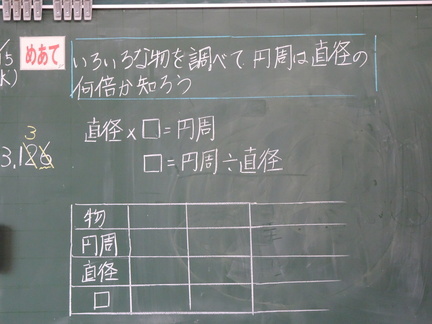 15
めあて
いろいろな物を調べて円周は直径の
何倍か知ろう
直径×□=円周
□=円周÷直径
3
3.126
物
円周
直径
□